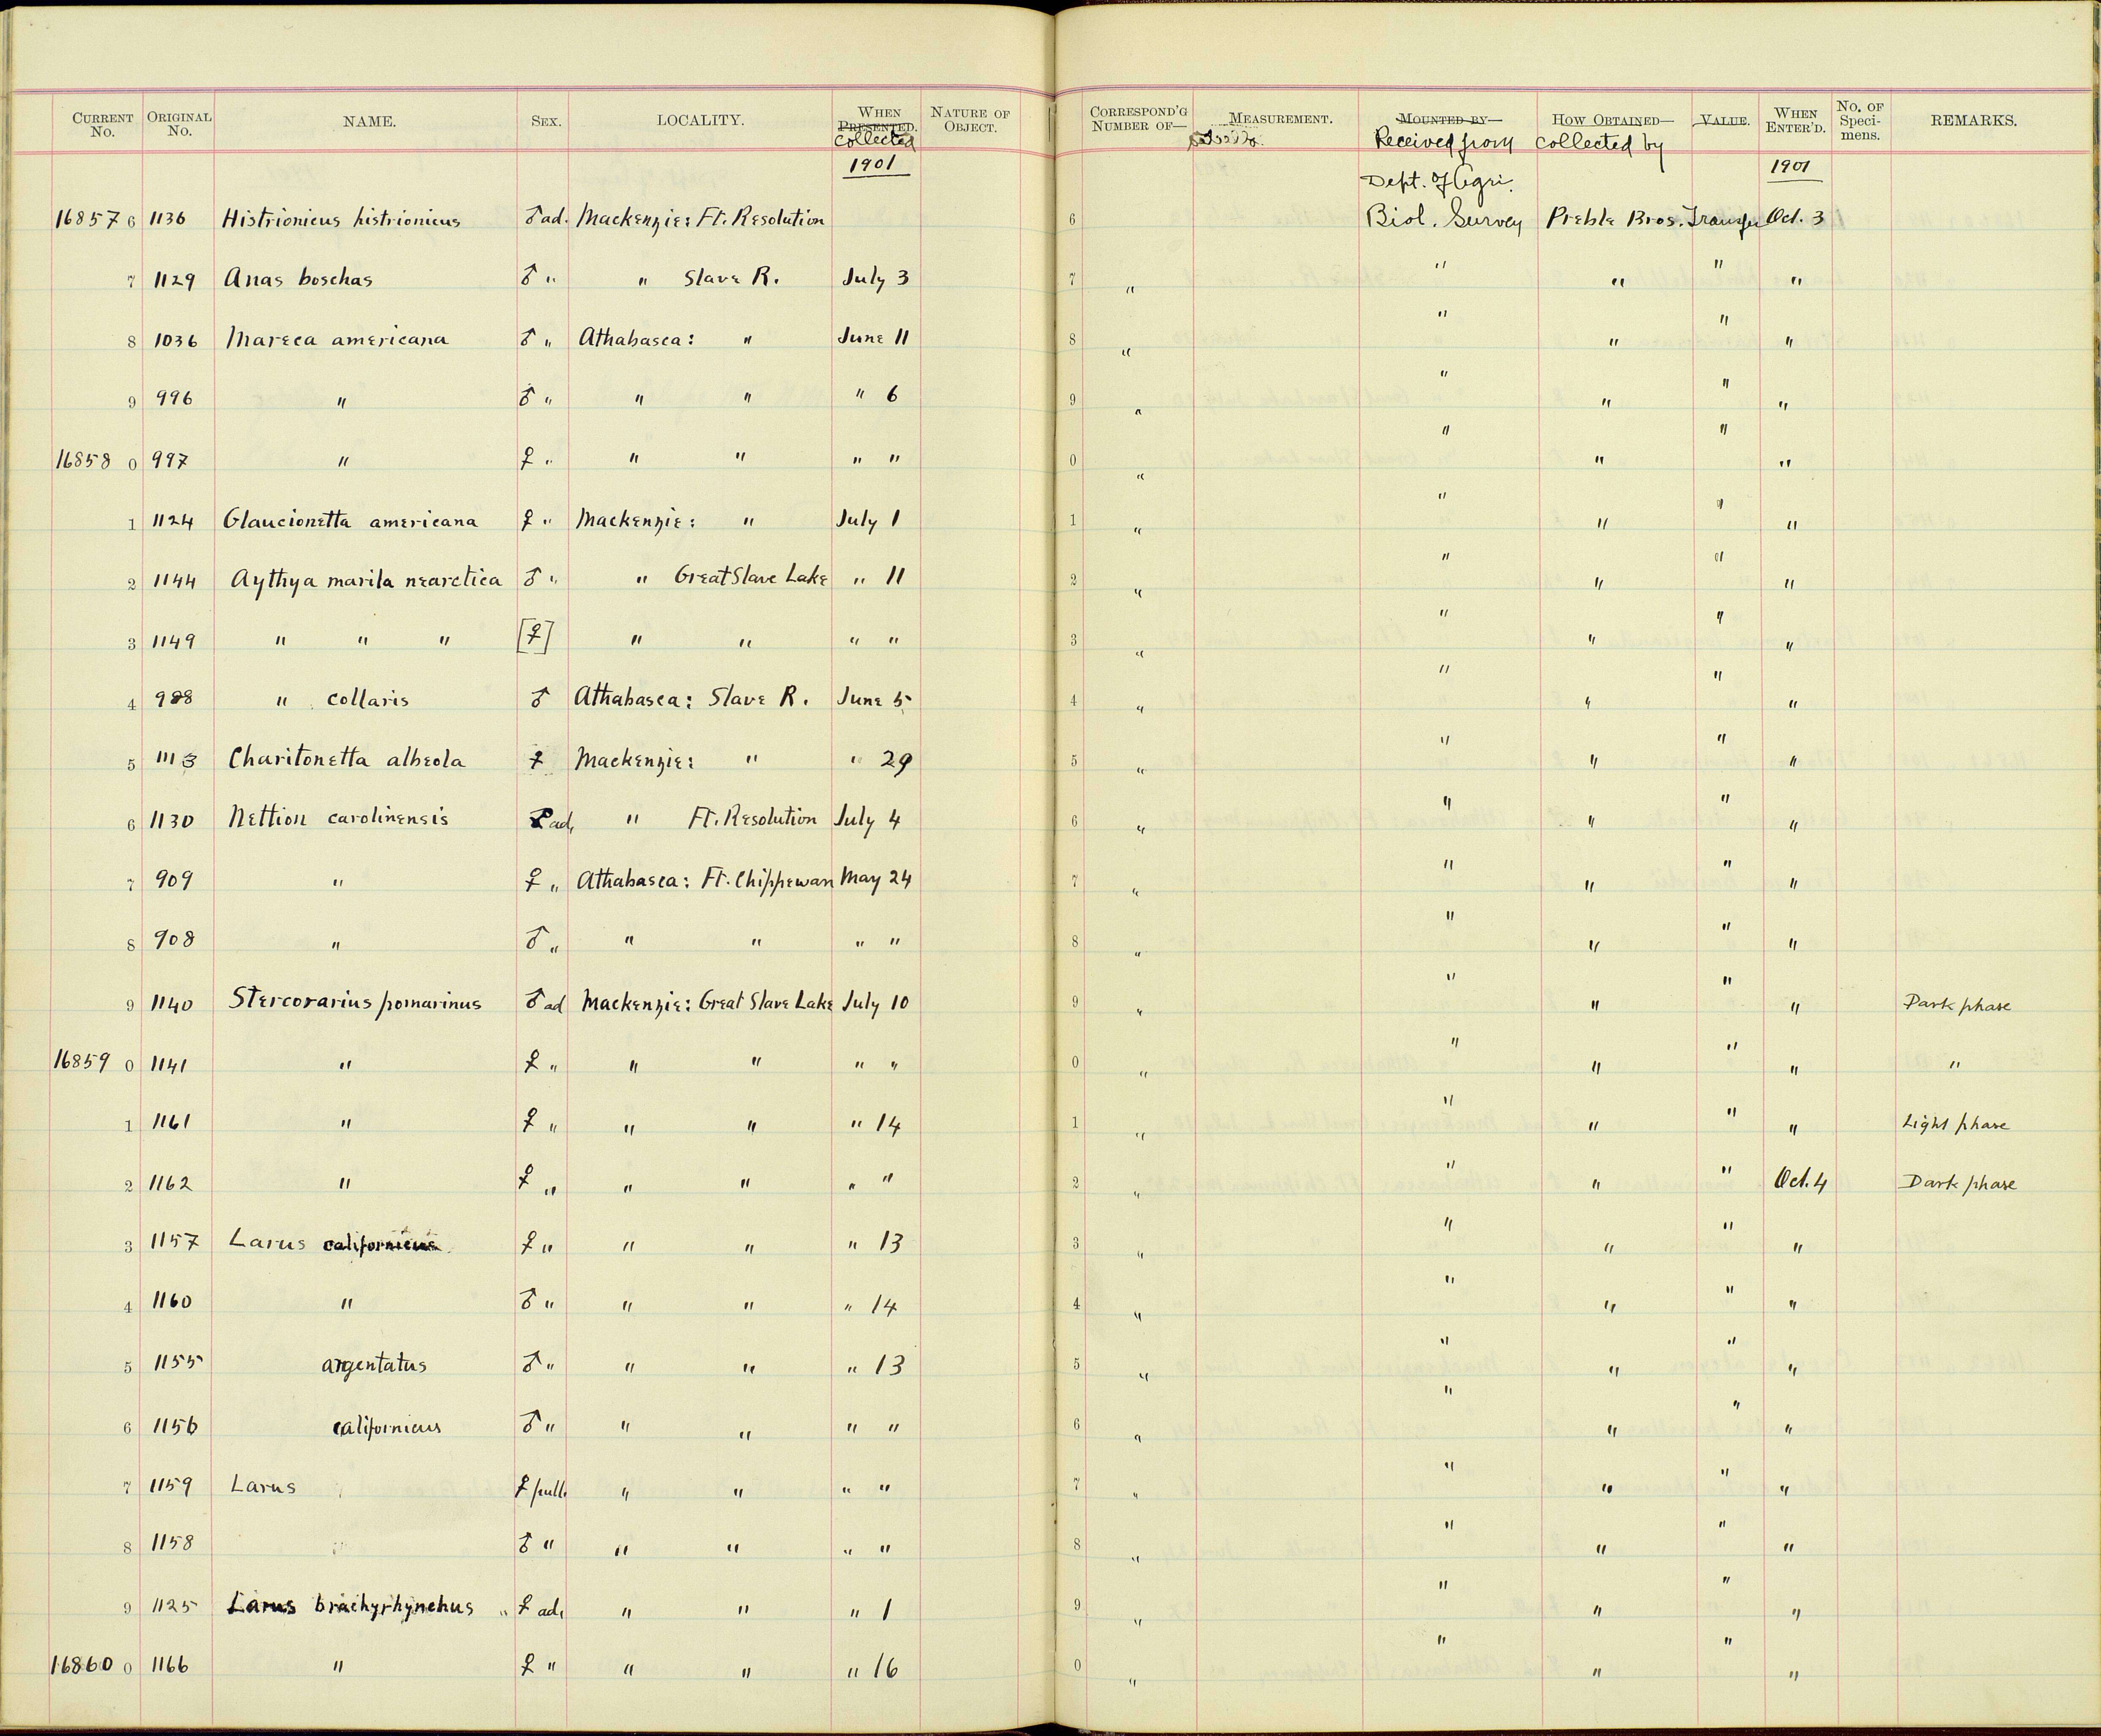 CURRENT No. ORIGINAL No. NAME. SEX. LOCALITY. WHEN PRESENTED. collected NATURE OF OBJECT. CORRESPOND'G NUMBER OF— MEASUREMENT. MOUNTED BY— Received from HOW OBTAINED— collected by VALUE. WHEN ENTER'D. No. OF Speci-mens. REMARKS.
1901 Dept. of Agri. 1901
16857 6 1136 Histrionicus histrionicus ♂ ad. Mackenzie: Ft. Resolution 6 Biol. Survey Preble Bros. Transfer Oct. 3
7 1129 Anas boschas ♂ " " Slave R. July 3 7 " " " " "
8 1036 Mareca americana ♂ " Athabasca: " June 11 8 " " " " "
9 996 " ♂ " " " " 6 9 " " " " "
16858 0 997 " ♀ " " " " " 0 " " " " "
1 1124 Glaucionetta americana ♀ " Mackenzie: " July 1 1 " " " " "
2 1144 Aythya marila nearctica ♂ " " Great Slave Lake " 11 2 " " " " "
3 1149 " " " [♀] " " " " 3 " " " " "
4 988 " collaris ♂ Athabasca: Slave R. June 5 4 " " " " "
5 1113 Charitonetta albeola ♀ Mackenzie: " " 29 5 " " " " "
6 1130 Nettion carolinensis ♀ ad. " Ft. Resolution July 4 6 " " " " "
7 909 " ♀ " Athabasca: Ft. Chippewan May 24 7 " " " " "
8 908 " ♂ " " " " " 8 " " " " "
9 1140 Stercorarius pomarinus ♂ ad Mackenzie: Great Slave Lake July 10 9 " " " " " Dark phase
16859 0 1141 " ♀ " " " " " 0 " " " " " "
1 1161 " ♀ " " " " 14 1 " " " " " Light phase
2 1162 " ♀ " " " " " 2 " " " " Oct. 4 Dark phase
3 1157 Larus californicus ♀ " " " " 13 3 " " " " "
4 1160 " ♂ " " " " 14 4 " " " " "
5 1155 argentatus ♂ " " " " 13 5 " " " " "
6 1156 californicus ♂ " " " " " 6 " " " " "
7 1159 Larus ♀ pull. " " " " 7 " " " " "
8 1158 ♂ " " " " " 8 " " " " "
9 1125 Larus brachyrhynchus " ♀ ad. " " " 1 9 " " " " "
16860 0 1166 " ♀ " " " " 16 0 " " " " "